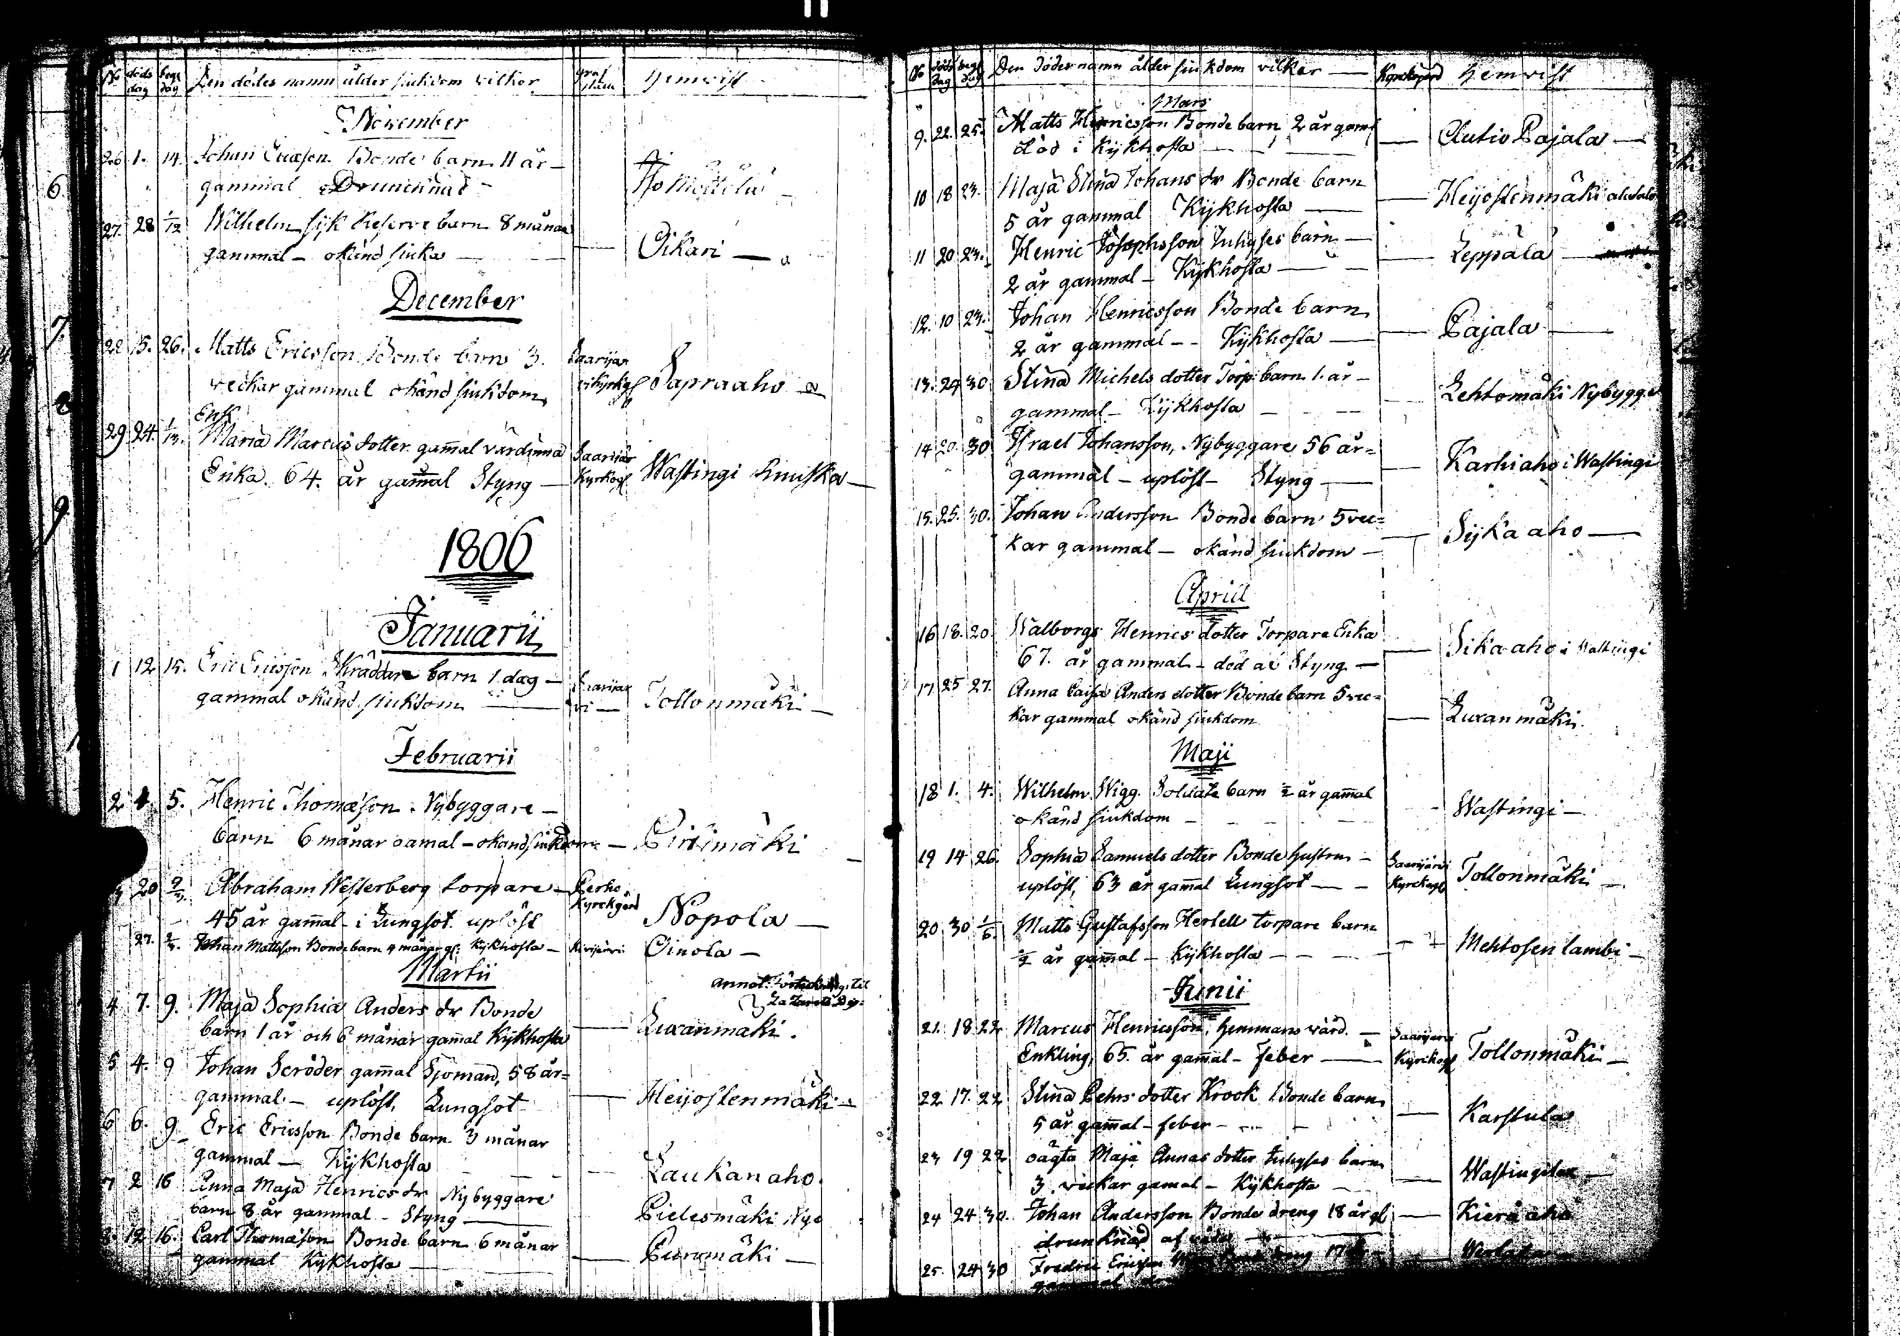 No döds dag begr dag Den dödes namn ålder siukdom vilkor graf ställe Hemvist
November
26 1. 14. Johan Ericsson Bonde barn 11 år
gammal Drunknad
27. 28 1/12 Wilhelm Sijk Reserve barn 8 månar
gammal – okänd siuka — Oikari —
December
28 15. 26. Matts Ericsson Bonde barn 3. Saarijar
veckar gammal okänd siukdom Sapraaho
Enk.
29 24. 1/13. Maria Marcus dotter gamal värdinna Saarijär
Enka. 64. år gammal Styng — Kyrkog Wastingi —
1806
Januarii
1 12. 15. Eric Ericsson Skräddare barn 1. dag – Saarijar
gammal okänd siukdom — vi — Tollonmäki —
Februarii
2 4. 5. Henric Thomæsson Nybyggare –
barn 6 månar gamal – okänd siukdom — Piilimäki —
3 20 2/3. Abraham Westerberg torpare – Perho
45 år gamal – i Lungsot uplöst Kyrckgård Nopola —
27. 2/3. Johan Mattsson Bonde barn 4 månar gl. Kijkhosta – Kivijärvi Oinola –
Martii
4 7. 9. Maja Sophia Anders dr Bonde
barn 1 år och 6 månar gamal Kijkhosta — Luxanmäki.
5 4. 9 Johan Scröder gamal Sjöman, 58 år=
gammal. – uplöst, Lungsot — Heijostenmäki –
6 6. 9 Eric Ericsson Bonde barn 3 månar
gammal — Kijkhosta — Laukanaho.
7 2 16 Anna Maja Henrics dr Nybyggare
barn 8 år gammal – Styng — Pielesmäki Nyb
8. 12 16. Carl Thomasson Bonde barn 6 månar
gammal Kijkhosta — Purumäki —
No döds Dag begr dag Den Dödes namn ålder siukdom vilkor — Kyrckogård Hemvist
Mars
9. 22. 25. Matts Henricsson Bonde barn, 2 år gamal
död i Kijkhosta — Autio Pajala —
10 18 23. Maja Stina Johans dr Bonde barn
5 år gammal Kijkhosta — Heijostenmäki
11 20 23. Henric Josephsson Inhyses barn –
2 år gammal – Kijkhosta — Leppälä —
12. 10 23. Johan Henricsson Bonde barn
2 år gammal – – Kijkhosta — Pajala —
13. 24 30 Stina Michels dotter Torp barn 1. år –
gammal – Kijkhosta — Lehtomäki Nybygge
14 20. 30 Israel Johansson, Nybyggare 56 år=
gammal – uplöst – Styng — Karhiaho i Wastingi
15. 25. 30. Johan Andersson Bonde barn 5 vec=
kar gammal – okänd siukdom — Sijka aho —
April
16 18. 20. Walborgs Henrics dotter Torpare Enka
67. år gammal – död av Styng — Sika aho i Wastingi
17 25 27. Anna Caisa Anders dotter Bonde barn 5 vec=
kar gammal okänd siukdom — Luxanmäki.
Maji
18 1. 4. Wilhelm Wigg. Soldate barn ½ år gamal
okänd siukdom — Wastingi –
19 14 26. Sophia Samuels dotter Bonde hustru – Saarijärvi
uplöst, 63 år gamal Lungsot — Kyrckog Tollonmäki –
20. 30 1/6. Matts Gustafsson Hertell torpare barn
½ år gamal – Kijkhosta — Mehtosen lambi –
Junii
21. 18 22 Marcus Henricsson, hemmans värd. — Saarijärvi
Enkling, 65. år gamal – feber — Kyrckog Tollonmäki –
22 17. 22 Stina Pehrs dotter Krook Bonde barn
5 år gamal – feber – Karstula
23 19 22 oägta Maja Annas dotter Inhyses barn
3. veckar gamal – Kijkhosta —
24 24 30. Johan Andersson Bonde dreng 18 år gl — Kierä aho
drunknad af
25. 24 30 Fredric Ericsson dreng 17 år